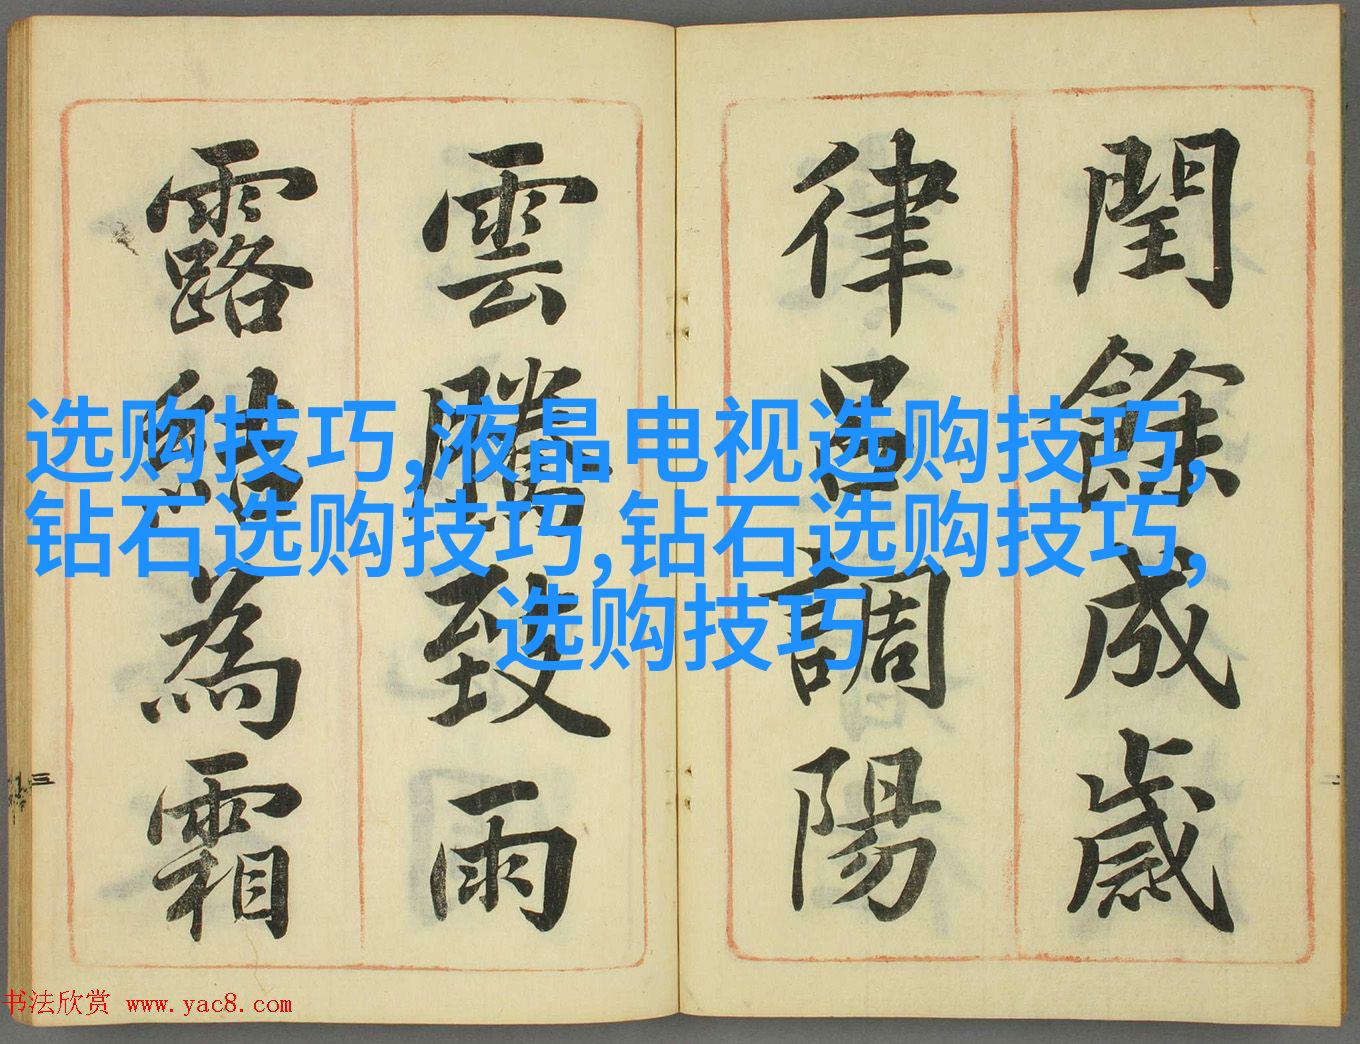 閏餘成歲
律呂調陽
雲騰致雨
露結為霜
选购技巧,液晶电视选购技巧,
钻石选购技巧,钻石选购技巧,
选购技巧
三
二
书法欣赏 www.yac8.com